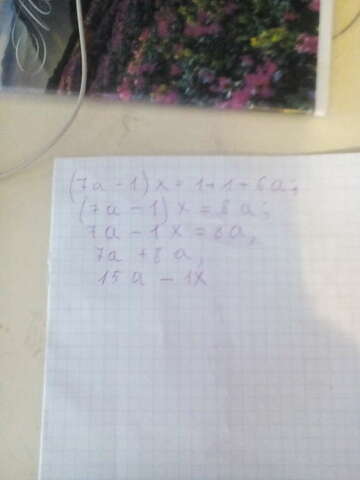 (7a - 1)x = 1 + 1 + 6a;
(7a - 1)x = 8a;
7a - 1x = 8a,
7a + 8a,
15a - 1x